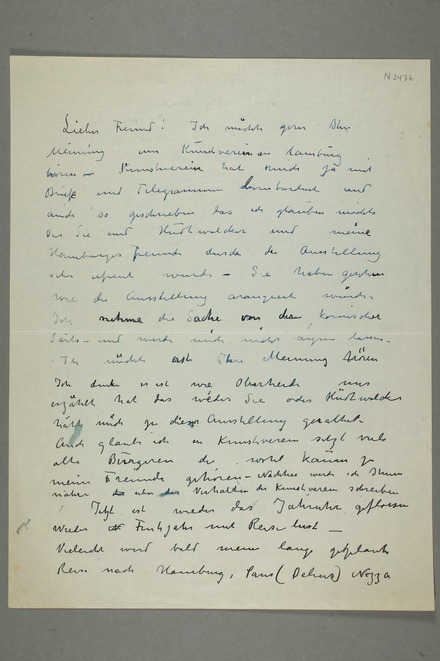 N 2476
Lieber Freund! Ich möchte gern Ihre
Meinung um Kunstverein in Hamburg
hören – Kunstverein hat mich ja mit
Briefe und Telegramme bombardiert und
auch so geschrieben das ich glauben möchte
das Sie und Hudtwalcker und meine
Hamburger Freunde durch die Ausstellung
sehr erfreut wurde – Sie haben gesehen
wie die Ausstellung arangiert wurde
Ich nehme die Sache von der komischer
Seite – und werde mich nicht argern lassen –
Ich möchte erst Ihre Meinung hören
Ich denke es ist wie Oberheide mir
erzählt hat das weder Sie oder Hudtwalcker
hätte mich zu dieser Ausstellung gerathet
Auch glaube ich en Kunstverein selgt viele
alte Bürgeren die wohl kaum zu
meine Freunde gehören – Nächstes werde ich Ihnen
näher über das Verhalten des Kunstverein schreiben
Jetzt ist wieder das Jahruhr geflossen
Wieder Frühjahr mit Reiselust –
Vieleicht wird bald meine lange geplante
Reise nach Hamburg, Paris (Delius) Nizza